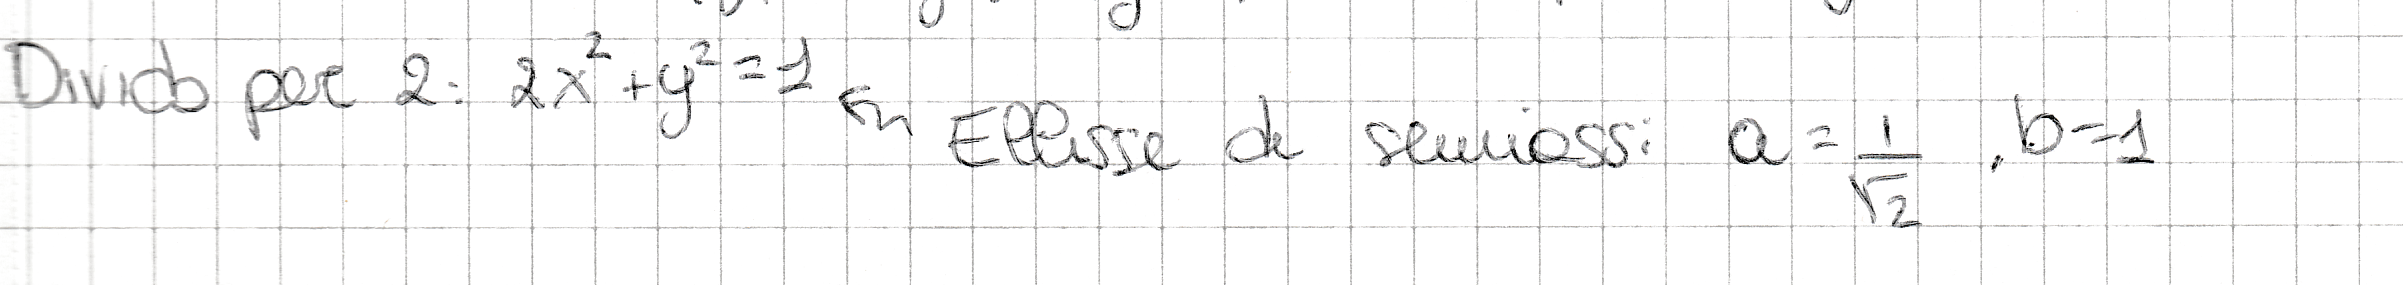 Divido per 2: 2x²+y²=1 ⇝ Ellisse di semiassi: a = 1/√2, b=1